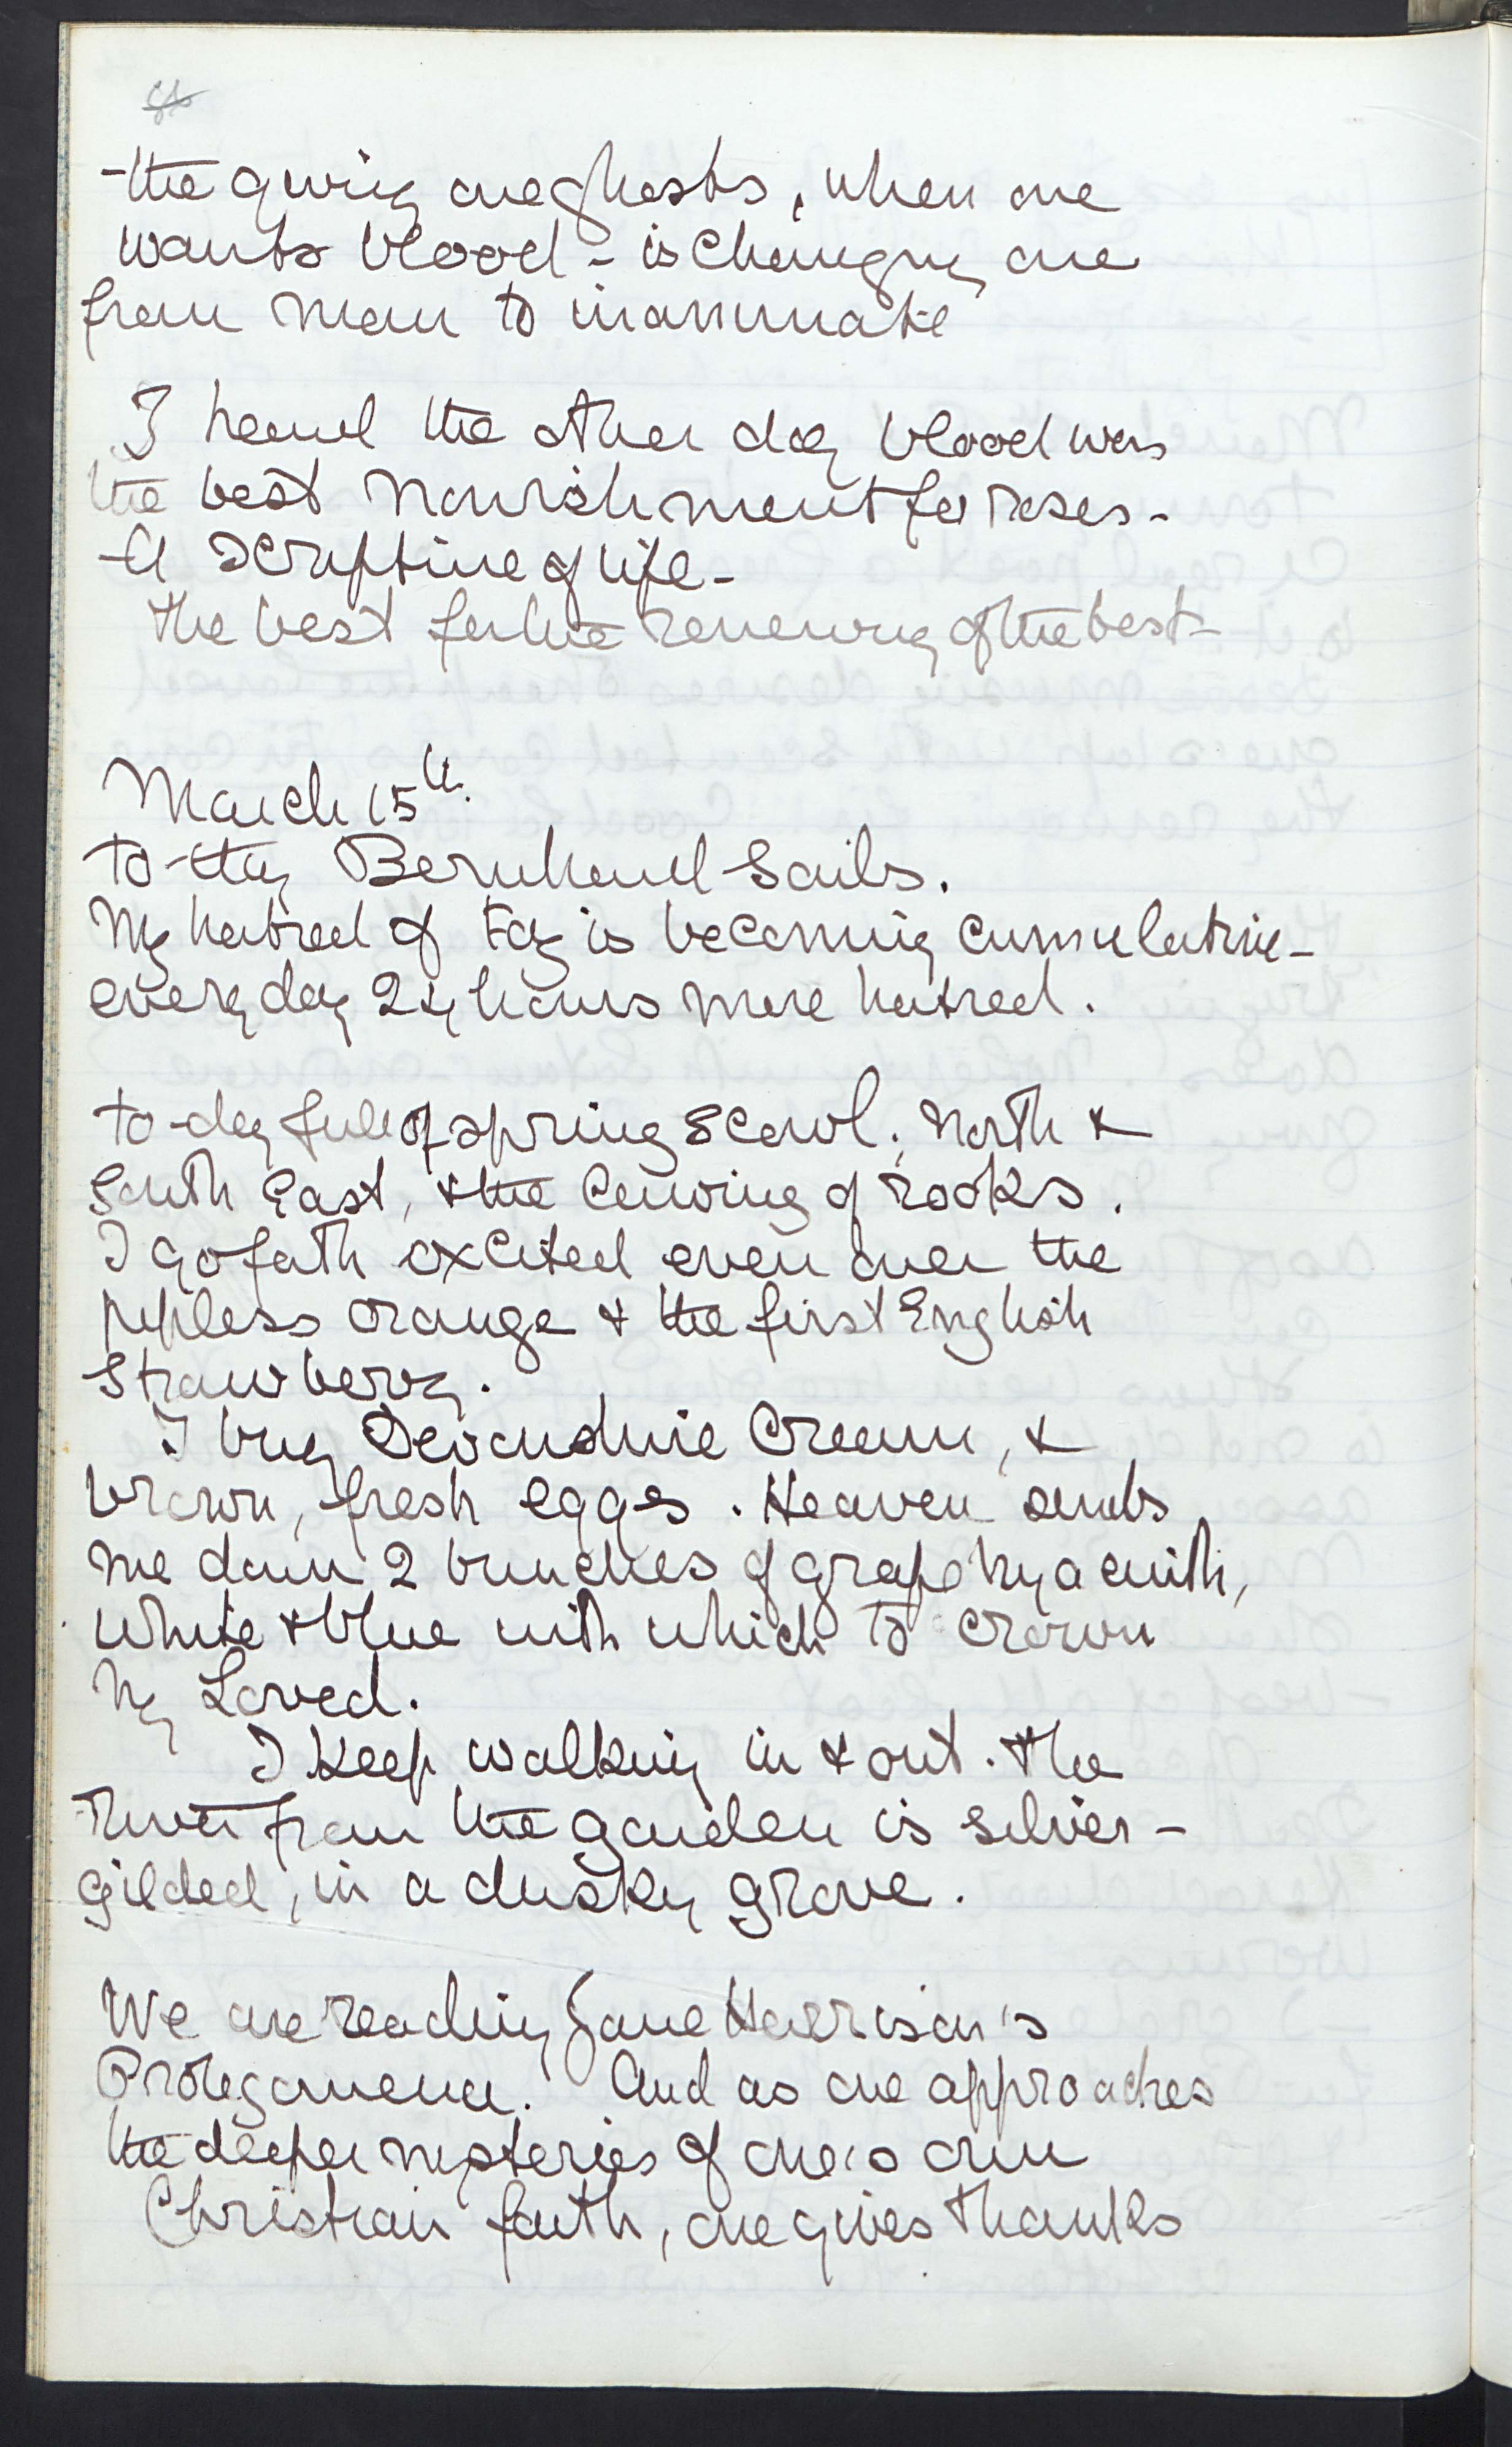 the giving one ghosts, when one
wants blood - is changing one
from man to inanimate
I heard the other day blood was
the best nourishment for roses -
A scripture of life -
The best for the renewing of the best -
March 15th.
To-day Bernhard Sails.
My hatred of Fog is becoming cumulative -
every day 24 hours more hatred.
To-day full of spring scowl, North &
South East, & the cawing of rooks.
I go forth excited even over the
pipless orange & the first English
Strawberry.
I buy Devonshire Cream, &
brown, fresh eggs. Heaven sends
me down 2 bunches of grape hyacinth,
white & blue with which to crown
my Loved.
I keep walking in & out. The
river from the garden is silver-
gilded, in a dusky grove.
We are reading Jane Harrison's
Prolegomena. And as one approaches
the deeper mysteries of one's own
Christian faith, one gives thanks